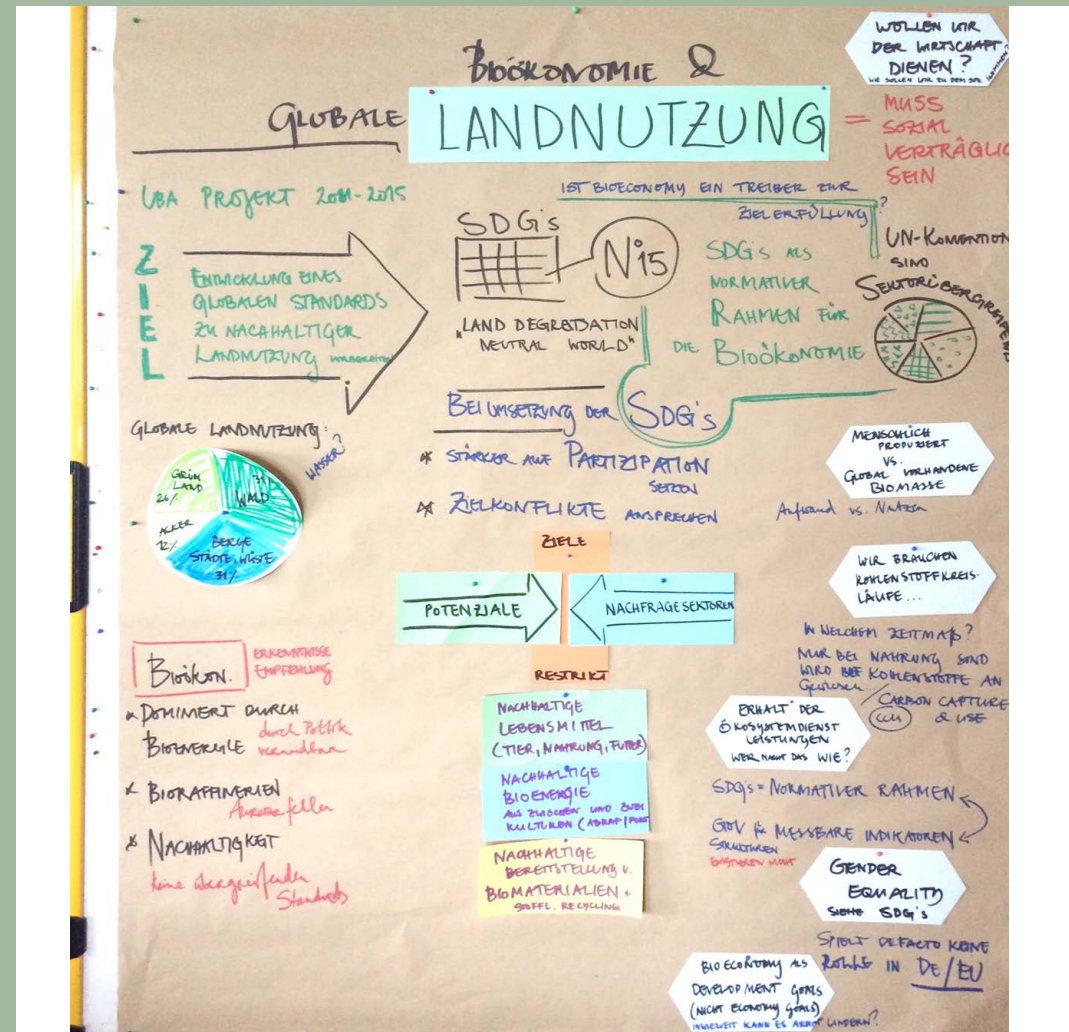 BIOÖKONOMIE &
GLOBALE LANDNUTZUNG
= MUSS
SOZIAL
VERTRÄGLIC
SEIN
WOLLEN WIR
DER WIRTSCHAFT
DIENEN?
UBA PROJEKT 2011-2015
IST BIOECONOMY EIN TREIBER ZUR
ZIELERFÜLLUNG?
ZIEL
ENTWICKLUNG EINES
GLOBALEN STANDARDS
ZU NACHHALTIGER
LANDNUTZUNG
SDG's
N°15
"LAND DEGREDSATION
NEUTRAL WORLD"
SDG's ALS
NORMATIVER
RAHMEN FÜR
DIE BIOÖKONOMIE
UN-KONVENTION
SIND
SEKTORÜBERGREIFEND
BEI UMSETZUNG DER SDG's
* STÄRKER AUF PARTIZIPATION
SETZEN
* ZIELKONFLIKTE ANSPRECHEN
GLOBALE LANDNUTZUNG:
WASSER?
GRÜN
LAND
26%
31%
WALD
ACKER
12%
BERGE
STÄDTE, WÜSTE
31%
MENSCHLICH
PRODUZIERT
VS.
GLOBAL VORHANDENE
BIOMASSE
Aufwand vs. Nutzen
ZIELE
POTENZIALE
NACHFRAGESEKTOREN
RESTRIKT
WIR BRAUCHEN
KOHLENSTOFFKREIS-
LÄUFE...
IN WELCHEM ZEITMAß?
NUR BEI NAHRUNG SIND
WIRD KOHLENSTOFFE AN
CARBON CAPTURE
CCU & USE
BIOÖKON.
ERKENNTNISSE
EMPFEHLUNG
* DOMINIERT DURCH
BIOENERGIE
durch Politik
vermeidbar
* BIORAFFINERIEN
* NACHHALTIGKEIT
keine übergreifenden
Standards
NACHHALTIGE
LEBENSMITTEL
(TIER, NAHRUNG, FUTTER)
NACHHALTIGE
BIOENERGIE
AUS ZWISCHEN UND ZWEI
KULTUREN
NACHHALTIGE
BEREITSTELLUNG V.
BIOMATERIALIEN +
STOFFL. RECYCLING
ERHALT DER
ÖKOSYSTEMDIENST
LEISTUNGEN
WER MACHT DAS WIE?
SDG's = NORMATIVER RAHMEN
GOV für MESSBARE INDIKATOREN
STRUKTUREN
EXISTIEREN NICHT
GENDER
EQUALITY
SIEHE SDG's
SPIELT DEFACTO KEINE
ROLLE IN DE/EU
BIOECONOMY AS
DEVELOPMENT GOALS
(NICHT ECONOMY GOALS)
INWIEWEIT KANN ES ARMUT LINDERN?